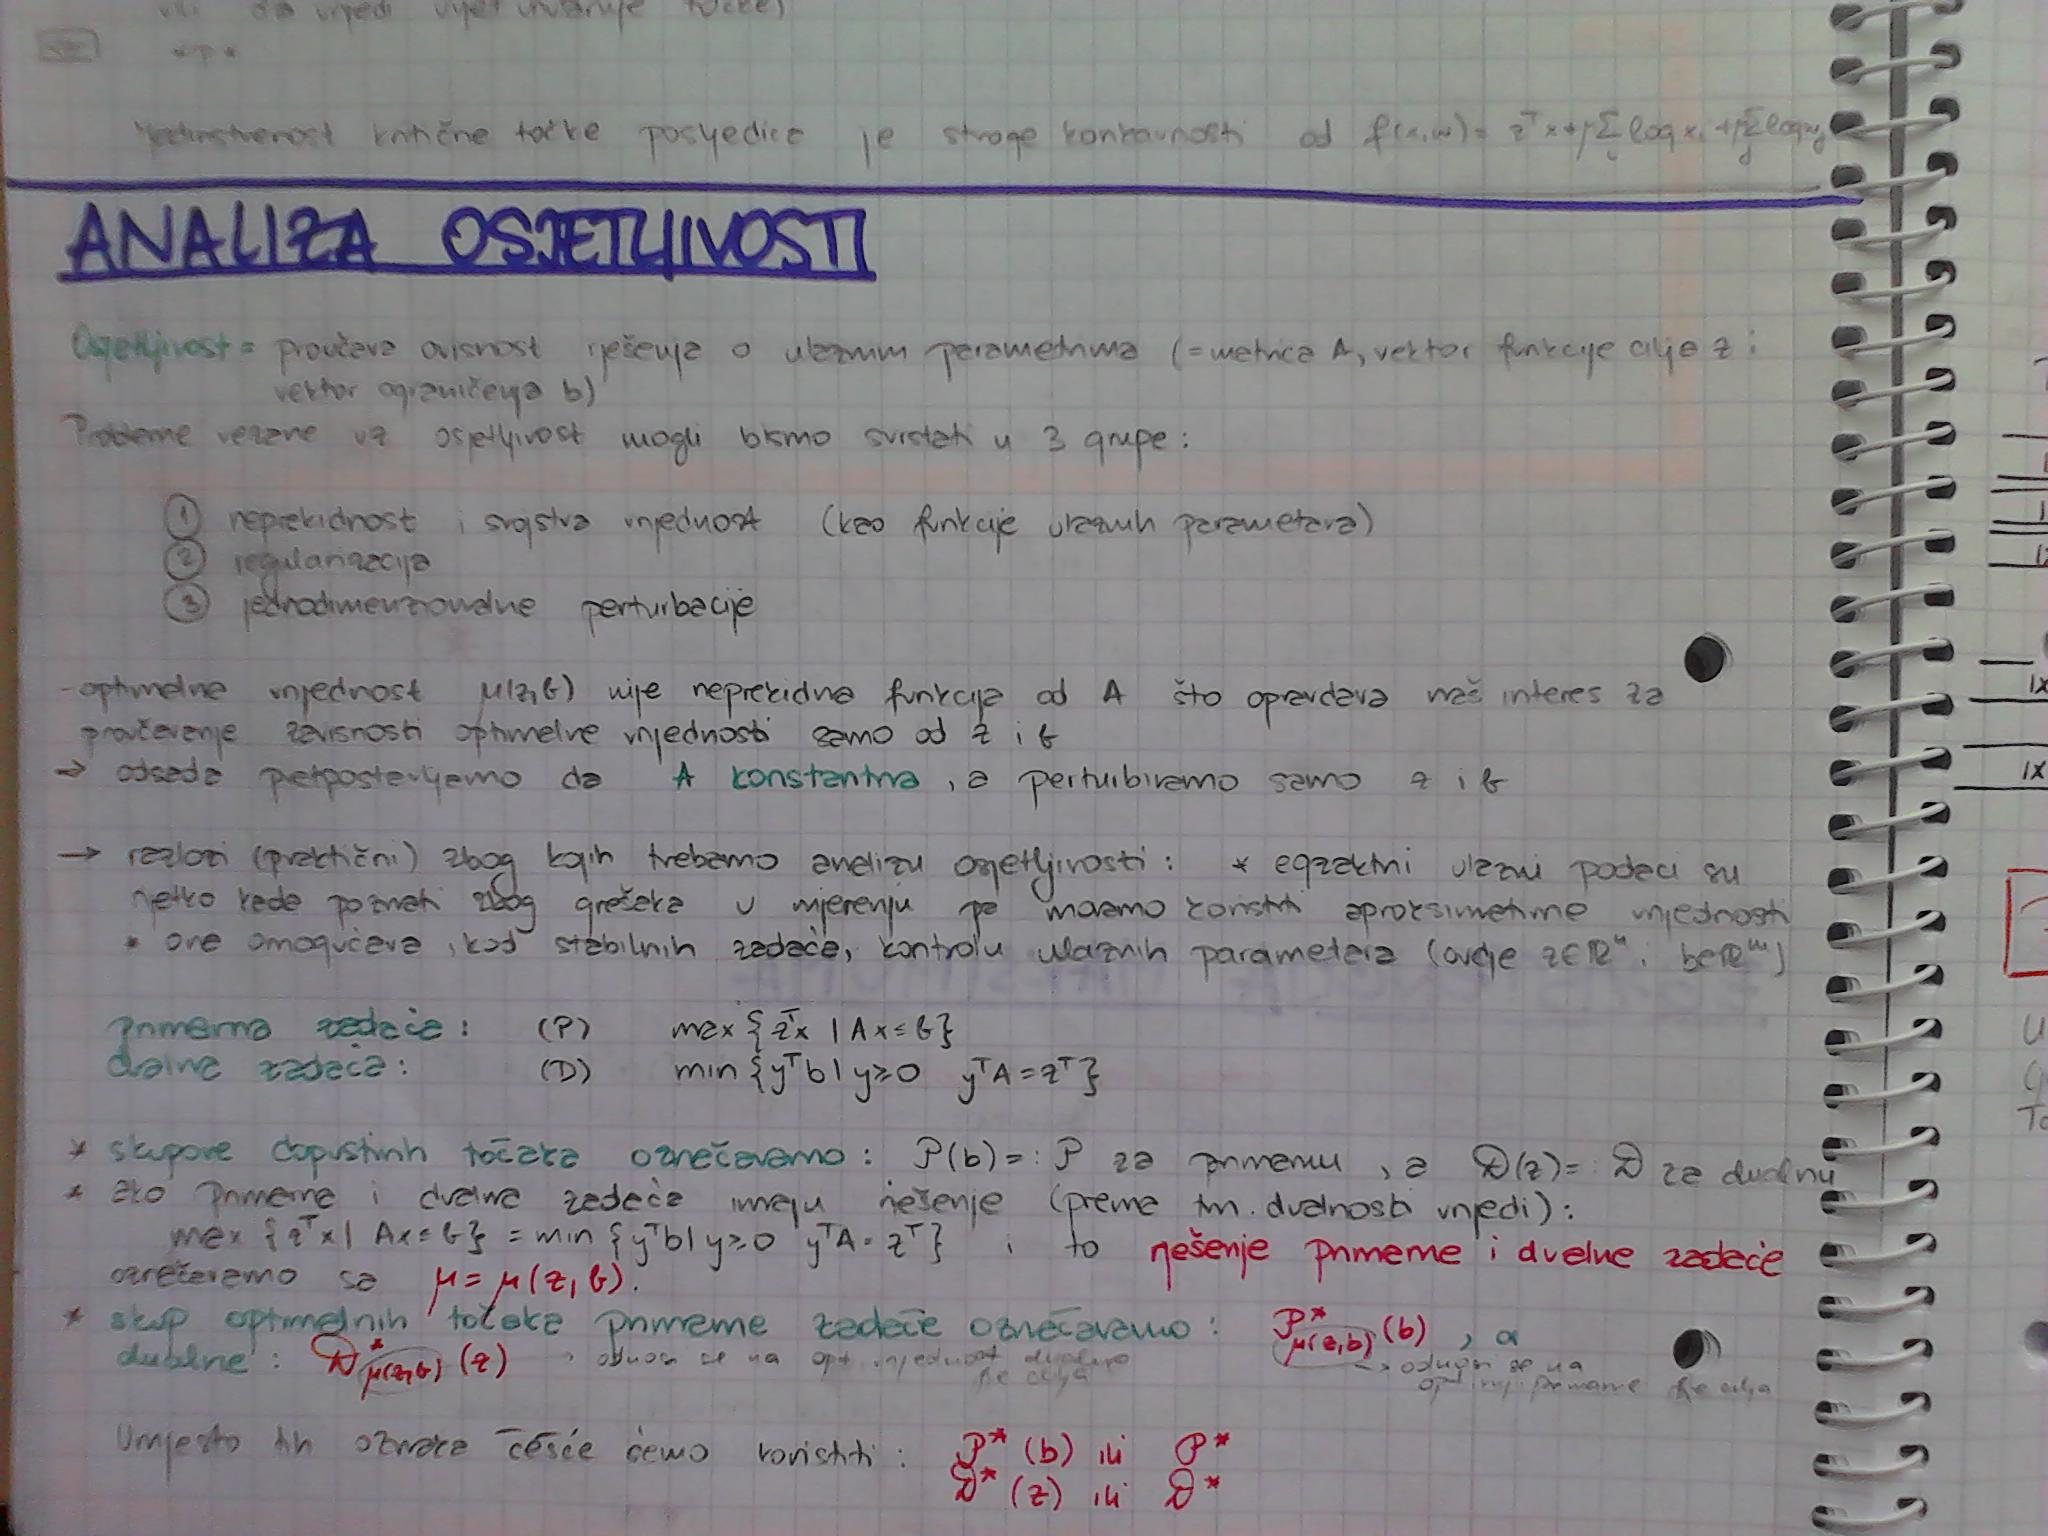 ili da vrijedi uvjet unutarnje točke)
Jedinstvenost kritične točke posljedica je stroge konkavnosti od f(x,w) = z^T x + μ∑_i log x_i + μ∑_j log w_j
ANALIZA OSJETLJIVOSTI
Osjetljivost = proučava ovisnost rješenja o ulaznim parametrima (= matrica A, vektor funkcije cilja z i
vektor ograničenja b)
Probleme vezane uz osjetljivost mogli bismo svrstati u 3 grupe:
① neprekidnost i svojstva vrijednost (kao funkcije ulaznih parametara)
② regularizacija
③ jednodimenzionalne perturbacije
- optimalna vrijednost μ(z,b) nije neprekidna funkcija od A što opravdava naš interes za
proučavanje zavisnosti optimalne vrijednosti samo od z i b
→ odsada pretpostavljamo da A konstantna, a perturbiramo samo z i b
→ razlozi (praktični) zbog kojih trebamo analizu osjetljivosti: * egzaktni ulazni podaci su
rijetko kada poznati zbog grešaka u mjerenju pa moramo koristiti aproksimativne vrijednosti
* ona omogućava, kod stabilnih zadaća, kontrolu ulaznih parametara (ovdje z∈ℝ^n i b∈ℝ^m)
primarna zadaća: (P) max {z^T x | Ax ≤ b}
dualna zadaća: (D) min {y^T b | y ≥ 0 y^T A = z^T}
* skupove dopustivih točaka označavamo: P(b) =: P za primarnu, a D(z) =: D za dualnu
* ako primarna i dualna zadaća imaju rješenje (prema tm. dualnosti vrijedi):
max {z^T x | Ax ≤ b} = min {y^T b | y ≥ 0 y^T A = z^T} i to rješenje primarne i dualne zadaće
označavamo sa μ = μ(z,b).
* skup optimalnih točaka primarne zadaće označavamo: P*_μ(z,b) (b), a
dualne: D*_μ(z,b) (z) → odnosi se na opt. vrijednost dualne fje cilja
→ odnosi se na opt. vrij. primarne fje cilja
Umjesto tih oznaka češće ćemo koristiti: P*(b) ili P*
D*(z) ili D*